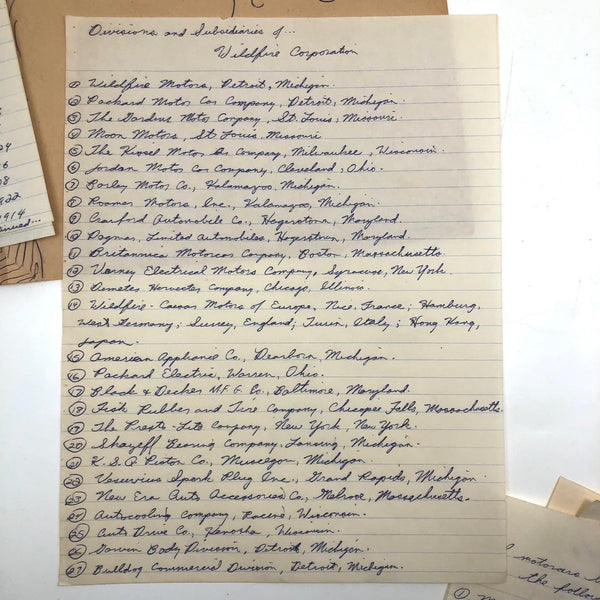 Divisions and Subsidiaries of...
Wildfire Corporation
① Wildfire Motors, Detroit, Michigan.
② Packard Motor Car Company, Detroit, Michigan.
③ The Gardens Motor Company, St. Louis, Missouri.
④ Moon Motors, St Louis, Missouri
⑤ The Kissel Motor Car Company, Milwaukee, Wisconsin.
⑥ Jordan Motor Car Company, Cleveland, Ohio.
⑦ Barley Motor Co., Kalamazoo, Michigan.
⑧ Roamer Motors, Inc., Kalamazoo, Michigan.
⑨ Crawford Automobile Co., Hagerstown, Maryland.
⑩ Dagmar, Limited Automobiles, Hagerstown, Maryland.
⑪ Britannica Motorcar Company, Boston, Massachusetts.
⑫ Varney Electrical Motors Company, Syracuse, New York.
⑬ Demeter Harvester Company, Chicago, Illinois.
⑭ Wildfire - Caesar Motors of Europe, Nice, France; Hamburg,
West Germany; Surrey, England; Turin, Italy; Hong Kong,
Japan.
⑮ American Appliance Co., Dearborn, Michigan.
⑯ Packard Electric, Warren, Ohio.
⑰ Black & Decker M.F.G. Co., Baltimore, Maryland.
⑱ Fisk Rubber and Tire Company, Chicopee Falls, Massachusetts.
⑲ The Prest-O-Lite Company, New York, New York.
⑳ Company, Lansing, Michigan.
㉑ K.S.G. Piston Co., Muskegon, Michigan
㉒ Vesuvius Spark Plug Inc., Grand Rapids, Michigan.
㉓ New Era Auto Accessories Co., Melrose, Massachusetts.
㉔ Autocooling Company, Racine, Wisconsin.
㉕ Auto Drive Co., Kenosha, Wisconsin.
㉖ Body Division, Detroit, Michigan.
㉗ Bulldog Commercial Division, Detroit, Michigan.
1922
1914
motorcars
the follow
①